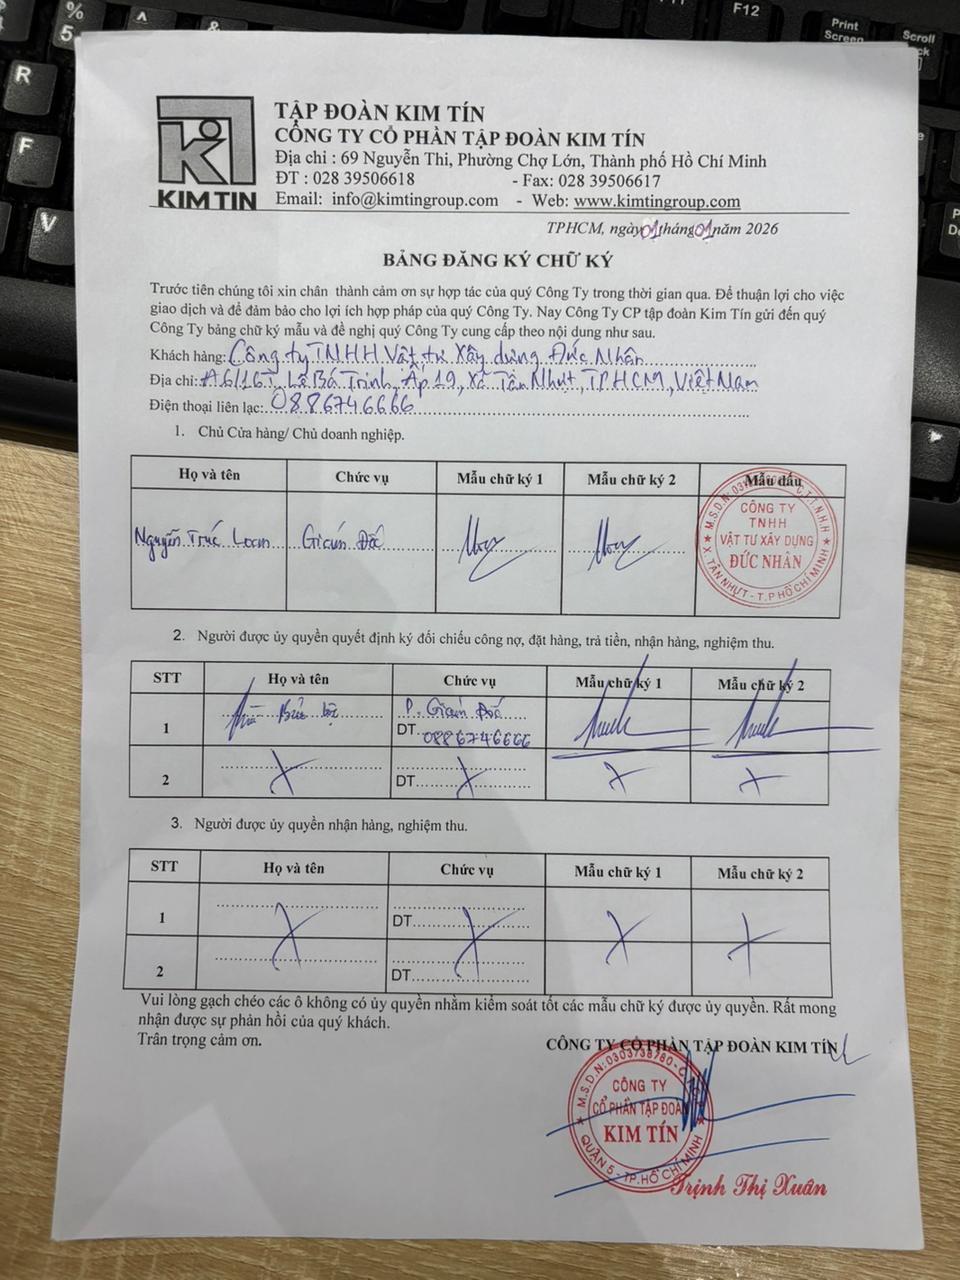 TẬP ĐOÀN KIM TÍN
CÔNG TY CỔ PHẦN TẬP ĐOÀN KIM TÍN
Địa chỉ : 69 Nguyễn Thi, Phường Chợ Lớn, Thành phố Hồ Chí Minh
ĐT : 028 39506618 - Fax: 028 39506617
Email: info@kimtingroup.com - Web: www.kimtingroup.com
KIM TIN
TPHCM, ngày 01 tháng 01 năm 2026
BẢNG ĐĂNG KÝ CHỮ KÝ
Trước tiên chúng tôi xin chân thành cảm ơn sự hợp tác của quý Công Ty trong thời gian qua. Để thuận lợi cho việc
giao dịch và để đảm bảo cho lợi ích hợp pháp của quý Công Ty. Nay Công Ty CP tập đoàn Kim Tín gửi đến quý
Công Ty bảng chữ ký mẫu và đề nghị quý Công Ty cung cấp theo nội dung như sau.
Khách hàng: Công ty TNHH Vật tư Xây dựng Đức Nhân
Địa chỉ: A6/16T, Lê Bá Trinh, Ấp 19, Xã Tân Nhựt, TPHCM, Việt Nam
Điện thoại liên lạc: 0886746666
1. Chủ Cửa hàng/ Chủ doanh nghiệp.
Họ và tên Chức vụ Mẫu chữ ký 1 Mẫu chữ ký 2 Mẫu dấu
Nguyễn Trúc Loan Giám Đốc
CÔNG TY
TNHH
VẬT TƯ XÂY DỰNG
ĐỨC NHÂN
X. TÂN NHỰT - T.P HỒ CHÍ MINH
2. Người được ủy quyền quyết định ký đối chiếu công nợ, đặt hàng, trả tiền, nhận hàng, nghiệm thu.
STT Họ và tên Chức vụ Mẫu chữ ký 1 Mẫu chữ ký 2
1 P. Giám Đốc
DT 0886746666
2 DT
3. Người được ủy quyền nhận hàng, nghiệm thu.
STT Họ và tên Chức vụ Mẫu chữ ký 1 Mẫu chữ ký 2
1 DT
2 DT
Vui lòng gạch chéo các ô không có ủy quyền nhằm kiểm soát tốt các mẫu chữ ký được ủy quyền. Rất mong
nhận được sự phản hồi của quý khách.
Trân trọng cảm ơn.
CÔNG TY CỔ PHẦN TẬP ĐOÀN KIM TÍN
M.S.D.N: 0303738780
CÔNG TY
CỔ PHẦN TẬP ĐOÀN
KIM TÍN
QUẬN 5 - TP. HỒ CHÍ MINH
Trịnh Thị Xuân
%
5
&
R
F
V
F12
Print
Screen
Scroll